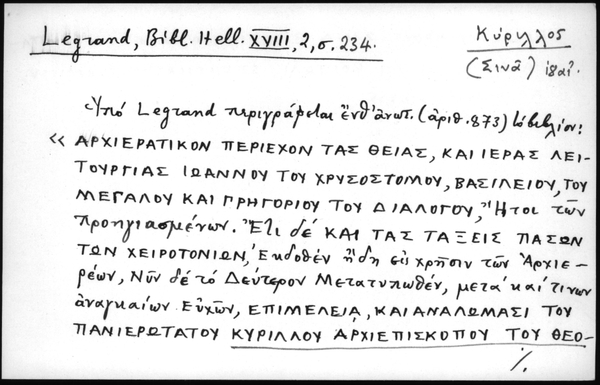 Legrand, Bibl. Hell. XVIII, 2, σ. 234.
Κύριλλος
(Σινᾶ)
Ὑπὸ Legrand περιγράφεται ἔνθ' ἀνωτ. (ἀριθ. 873) τὸ βιβλίον:
« ΑΡΧΙΕΡΑΤΙΚΟΝ ΠΕΡΙΕΧΟΝ ΤΑΣ ΘΕΙΑΣ, ΚΑΙ ΙΕΡΑΣ ΛΕΙ-
ΤΟΥΡΓΙΑΣ ΙΩΑΝΝΟΥ ΤΟΥ ΧΡΥΣΟΣΤΟΜΟΥ, ΒΑΣΙΛΕΙΟΥ, ΤΟΥ
ΜΕΓΑΛΟΥ ΚΑΙ ΓΡΗΓΟΡΙΟΥ ΤΟΥ ΔΙΑΛΟΓΟΥ, Ἤτοι τῶν
Προηγιασμένων. Ἔτι δέ ΚΑΙ ΤΑΣ ΤΑΞΕΙΣ ΠΑΣΩΝ
ΤΩΝ ΧΕΙΡΟΤΟΝΙΩΝ, Ἐκδοθέν ἤδη εἰς χρῆσιν τῶν Ἀρχιε-
ρέων, Νῦν δέ τό Δεύτερον Μετατυπωθέν, μετά καί τινων
ἀναγκαίων Εὐχῶν, ΕΠΙΜΕΛΕΙᾼ, ΚΑΙ ΑΝΑΛΩΜΑΣΙ ΤΟΥ
ΠΑΝΙΕΡΩΤΑΤΟΥ ΚΥΡΙΛΛΟΥ ΑΡΧΙΕΠΙΣΚΟΠΟΥ ΤΟΥ ΘΕΟ-
./.